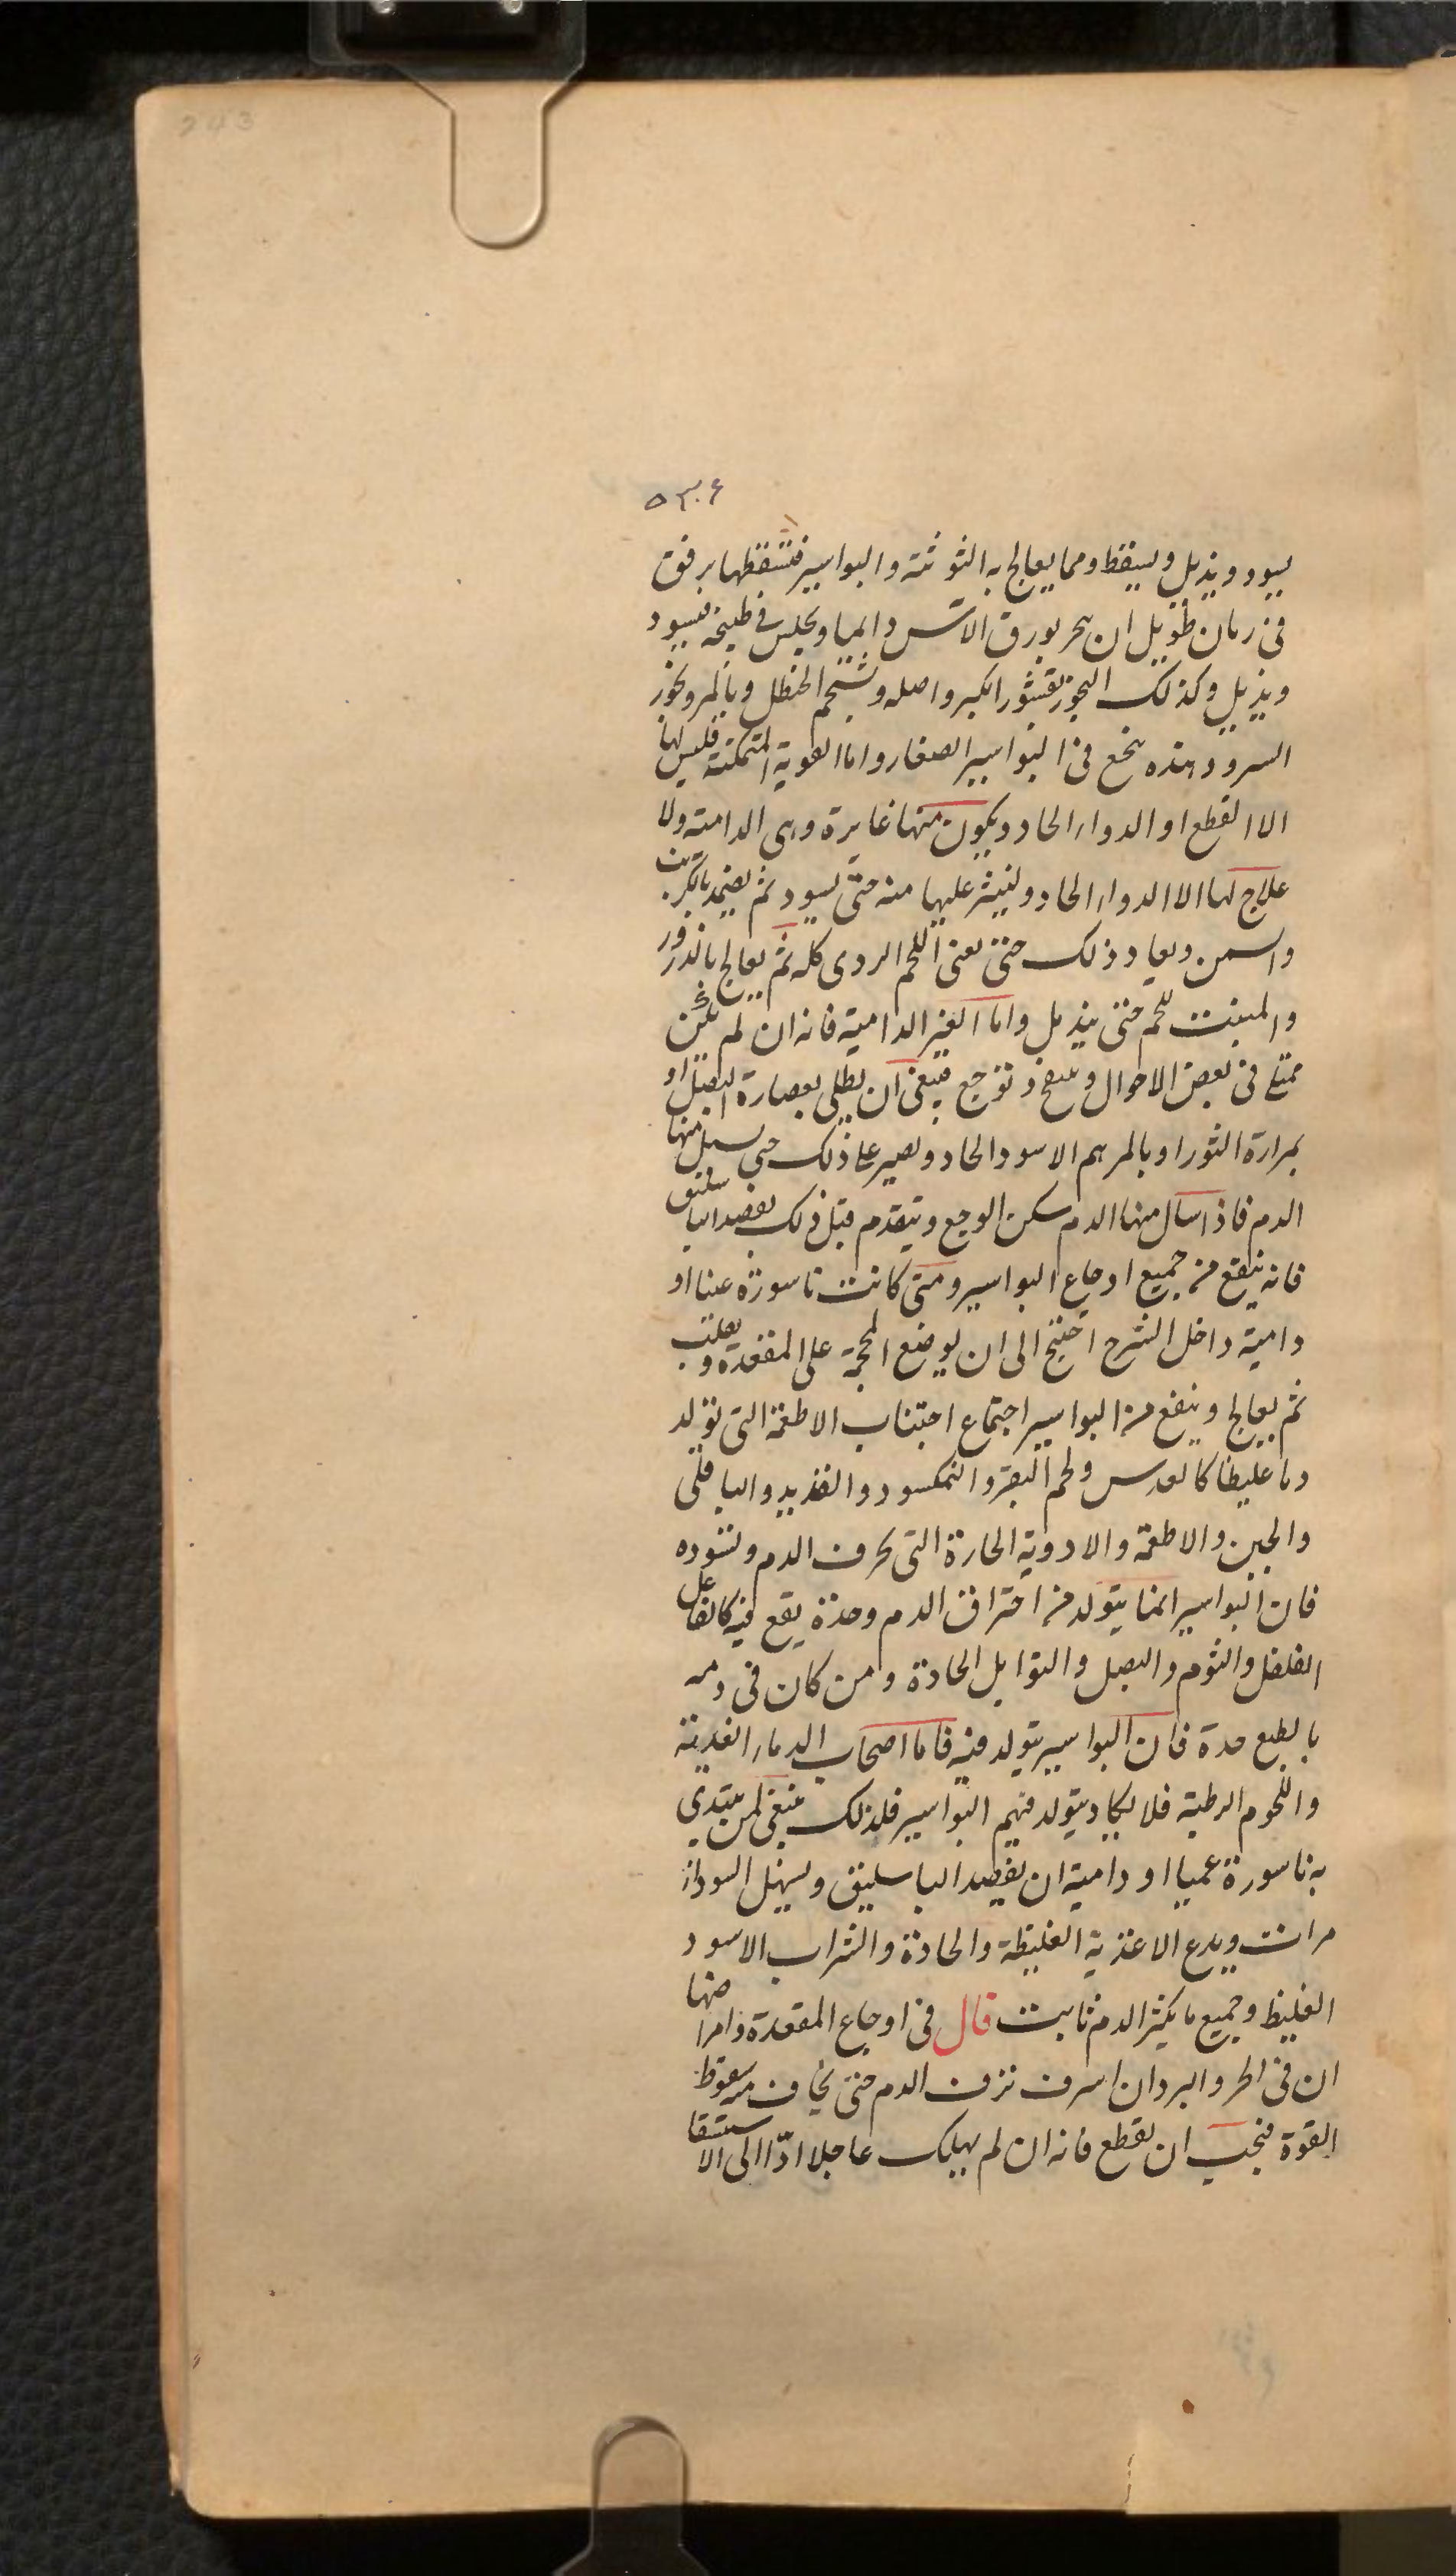 243
٥٣٠٦
يسود ويذبل ويسقط ومما يعالج به التوثة والبواسير فتسقطها برفق
في زمان طويل ان يبخر بورق الآس دايما ويجلس في طبيخه فيسود
ويذبل وكذلك البخور بقشور الكبر واصله وشحم الحنظل وبالمر وبخور
السرو وهذه ينجع في البواسير الصغار واما القوية المتمكنة فليس لها
الا القطع او الدواء الحاد ويكون منها غايرة وهي الدامية ولا
علاج لها الا الدواء الحاد ولينثر عليها منه حتى يسود ثم يضمد بالكرنب
والسمن ويعاد ذلك حتى يفنى اللحم الردى كله ثم يعالج بالذرور
والمنبت للحم حتى يندمل واما الغير الدامية فانه ان لم يكن
تمتلى في بعض الاحوال وينتفخ وتوجع فينبغي ان يطلى بعصارة البصل او
بمرارة الثور او بالمرهم الاسود الحاد ويصبر على ذلك حتى يسيل منها
الدم فاذا سال منها الدم سكن الوجع ويتقدم قبل ذلك بفصد الباسليق
فانه ينفع من جميع اوجاع البواسير ومتى كانت ناسورة عميا او
دامية داخل الشرج احتيج الى ان يوضع المحجمة على المقعدة ويقلب
ثم يعالج وينفع من البواسير اجتماع اجتناب الاطعمة التي تولد
دما غليظا كالعدس ولحم البقر والنمكسود والقديد والباقلى
والجبن والاطعمة والادوية الحارة التي تحرق الدم وتسوده
فان البواسير انما يتولد من احتراق الدم وحدة يقع فيه كالفاعل
الفلفل والثوم والبصل والتوابل الحادة ومن كان في دمه
بالطبع حدة فان البواسير يتولد فيه فاما اصحاب الدماء العذبة
واللحوم الرطبة فلا يكاد يتولد فيهم البواسير فلذلك ينبغي لمن يبتدي
به ناسورة عميا او دامية ان يفصد الباسليق ويسهل السوداء
مرات ويدع الاغذية الغليظة والحادة والشراب الاسود
الغليظ وجميع ما يكثر الدم ثابت قال في اوجاع المقعدة وامراضها
ان في الحر والبرد ان اسرف نزف الدم حتى يخاف منه سقوط
القوة فيجب ان يقطع فانه ان لم يهلك عاجلا ادّا الى الاستسقا